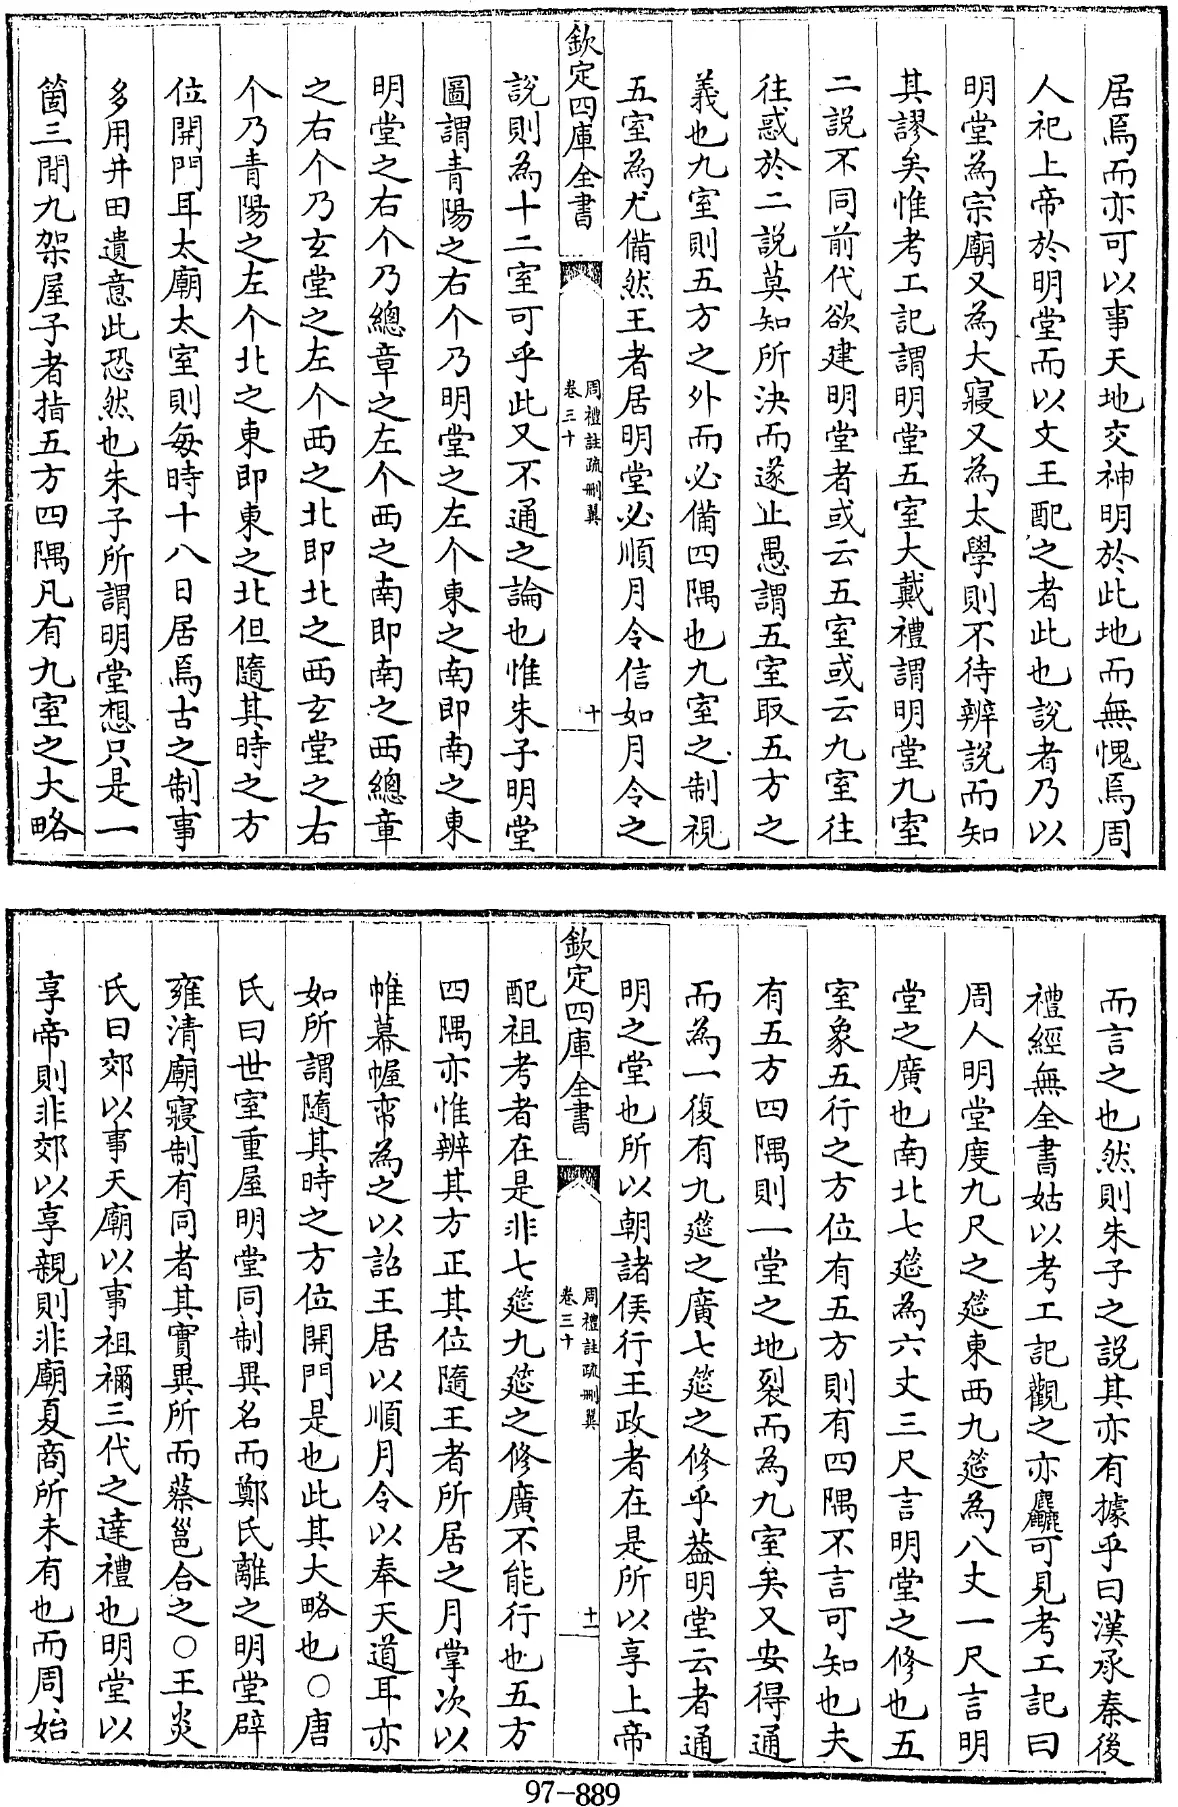 居焉而亦可以事天地交神明於此地而無愧焉周
人祀上帝於明堂而以文王配之者此也說者乃以
明堂為宗廟又為大寢又為太學則不待辨說而知
其謬矣惟考工記謂明堂五室大戴禮謂明堂九室
二說不同前代欲建明堂者或云五室或云九室往
往惑於二說莫知所決而遂止愚謂五室取五方之
義也九室則五方之外而必備四隅也九室之制視
五室為尤備然王者居明堂必順月令信如月令之
欽定四庫全書
周禮註疏刪翼
卷三十
十
說則為十二室可乎此又不通之論也惟朱子明堂
圖謂青陽之右个乃明堂之左个東之南即南之東
明堂之右个乃總章之左个西之南即南之西總章
之右个乃玄堂之左个西之北即北之西玄堂之右
个乃青陽之左个北之東即東之北但隨其時之方
位開門耳太廟太室則每時十八日居焉古之制事
多用井田遺意此恐然也朱子所謂明堂想只是一
箇三間九架屋子者指五方四隅凡有九室之大略
而言之也然則朱子之說其亦有據乎曰漢承秦後
禮經無全書姑以考工記觀之亦麤可見考工記曰
周人明堂度九尺之筵東西九筵為八丈一尺言明
堂之廣也南北七筵為六丈三尺言明堂之修也五
室象五行之方位有五方則有四隅不言可知也夫
有五方四隅則一堂之地裂而為九室矣又安得通
而為一復有九筵之廣七筵之修乎葢明堂云者通
明之堂也所以朝諸侯行王政者在是所以享上帝
欽定四庫全書
周禮註疏刪翼
卷三十
十一
配祖考者在是非七筵九筵之修廣不能行也五方
四隅亦惟辨其方正其位隨王者所居之月掌次以
帷幕幄帟為之以詔王居以順月令以奉天道耳亦
如所謂隨其時之方位開門是也此其大略也○唐
氏曰世室重屋明堂同制異名而鄭氏離之明堂辟
雍清廟寢制有同者其實異所而蔡邕合之○王炎
氏曰郊以事天廟以事祖禰三代之達禮也明堂以
享帝則非郊以享親則非廟夏商所未有也而周始
97-889